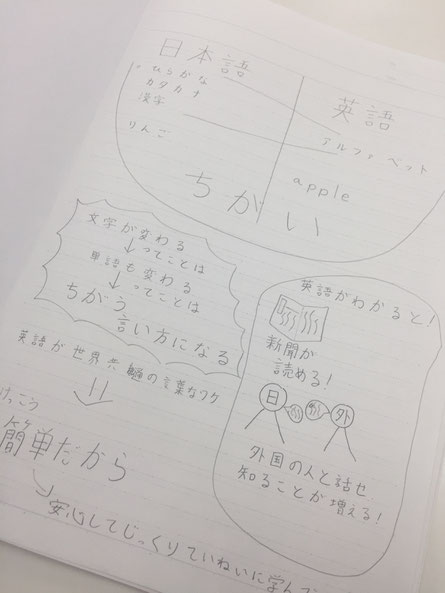 日本語
ひらがな
カタカナ
漢字
りんご
英語
アルファベット
apple
ちがい
文字が変わる
ってことは
単語も変わる
ってことは
ちがう
言い方になる
英語がわかると!
新聞が
読める!
日
外
外国の人と話せ
知ることが増える!
英語が世界共通の言葉なワケ
けっこう
簡単だから
安心してじっくりていねいに学ん